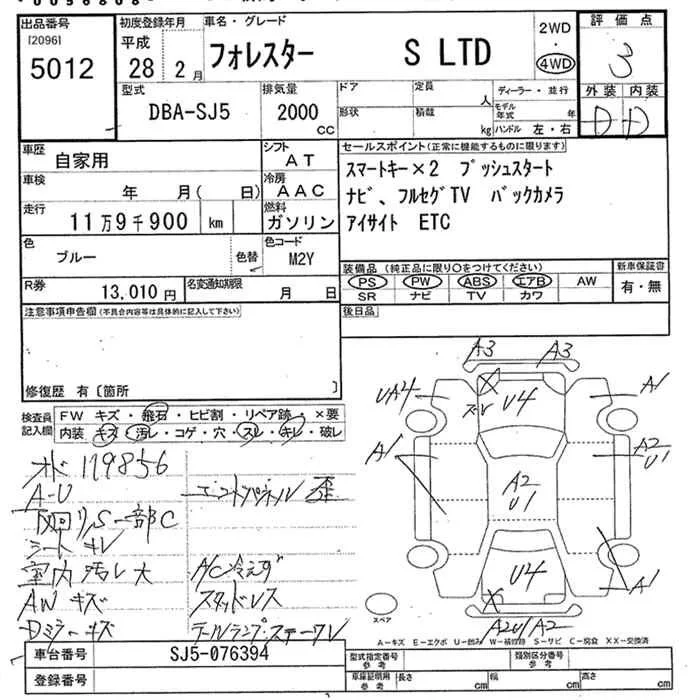 出品番号
[2096]
5012
初度登録年月
平成
28 2月
車名・グレード
フォレスター S LTD
2WD
・
4WD
評価点
3
外装 内装
D D
型式
DBA-SJ5
排気量
2000
CC
ドア
定員
人
形状
積載
kg
ディーラー・並行
モデル
年式
年
ハンドル 左・右
車歴
自家用
シフト
AT
車検
年 月( 日)
冷房
AAC
走行
11万9千900 km
燃料
ガソリン
色
ブルー
色替
色コード
M2Y
R券
13,010円
名変通知期限
月 日
セールスポイント(正常に機能するものに限ります)
スマートキー×2 プッシュスタート
ナビ、フルセグTV バックカメラ
アイサイト ETC
装備品(純正品に限り○をつけてください)
PS PW ABS エアB AW
SR ナビ TV カワ
新車保証書
有・無
後日品
注意事項申告欄(不具合内容等は具体的に記入して下さい)
修復歴 有〔箇所 〕
検査員
記入欄
FW キズ・飛石・ヒビ割・リペア跡・×要
内装 キズ・汚レ・コゲ・穴・スレ・キレ・破レ
オド 119856
A-U
下回リS一部C
シートキレ
室内汚レ大
AWキズ
Dミラーキズ
エンドパネル歪
A/C冷えず
スタッドレス
テールランプ・ステーワレ
A3 A3
UA4
ズレ
U4
A1
A1
A2
U1
A2
U1
U4
A1
A2U1A2
スペア
A-キズ E-エクボ U-凹み W-補修跡 S-サビ C-腐食 XX-交換済
車台番号
SJ5-076394
登録番号
型式指定番号
参考
類別区分番号
参考
車庫証明用
参考
長さ cm
幅 cm
高さ cm